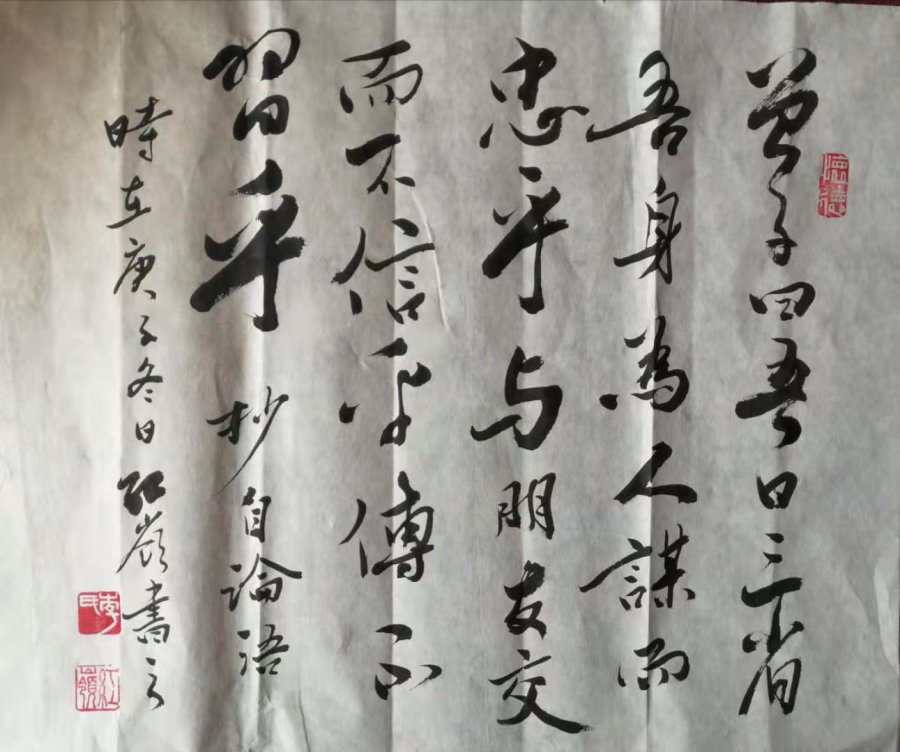 懷德
曾子曰吾日三省
吾身為人謀而
忠乎与朋友交
而不信乎傳不
習乎 抄自論語
時在庚子冬日 红嶺書之
李氏
紅嶺